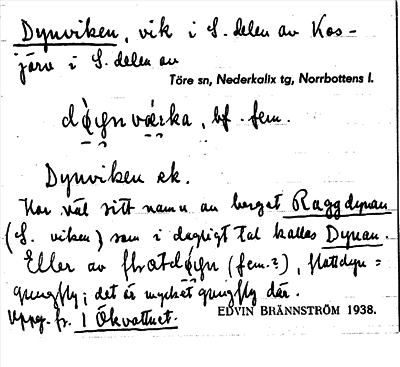 Dynviken, vik i S. delen av Kos-
järv i S. delen av
Töre sn, Nederkalix tg, Norrbottens l.
bf. fem.
Dynviken ek.
Har väl sitt namn av berget Raggdynan
(S. viken) som i dagligt tal kallas Dynan.
Eller av (fem.?), flottdyn =
gungfly; det är mycket gungfly där.
Uppg. fr. 1 Ökvattnet.
EDVIN BRÄNNSTRÖM 1938.